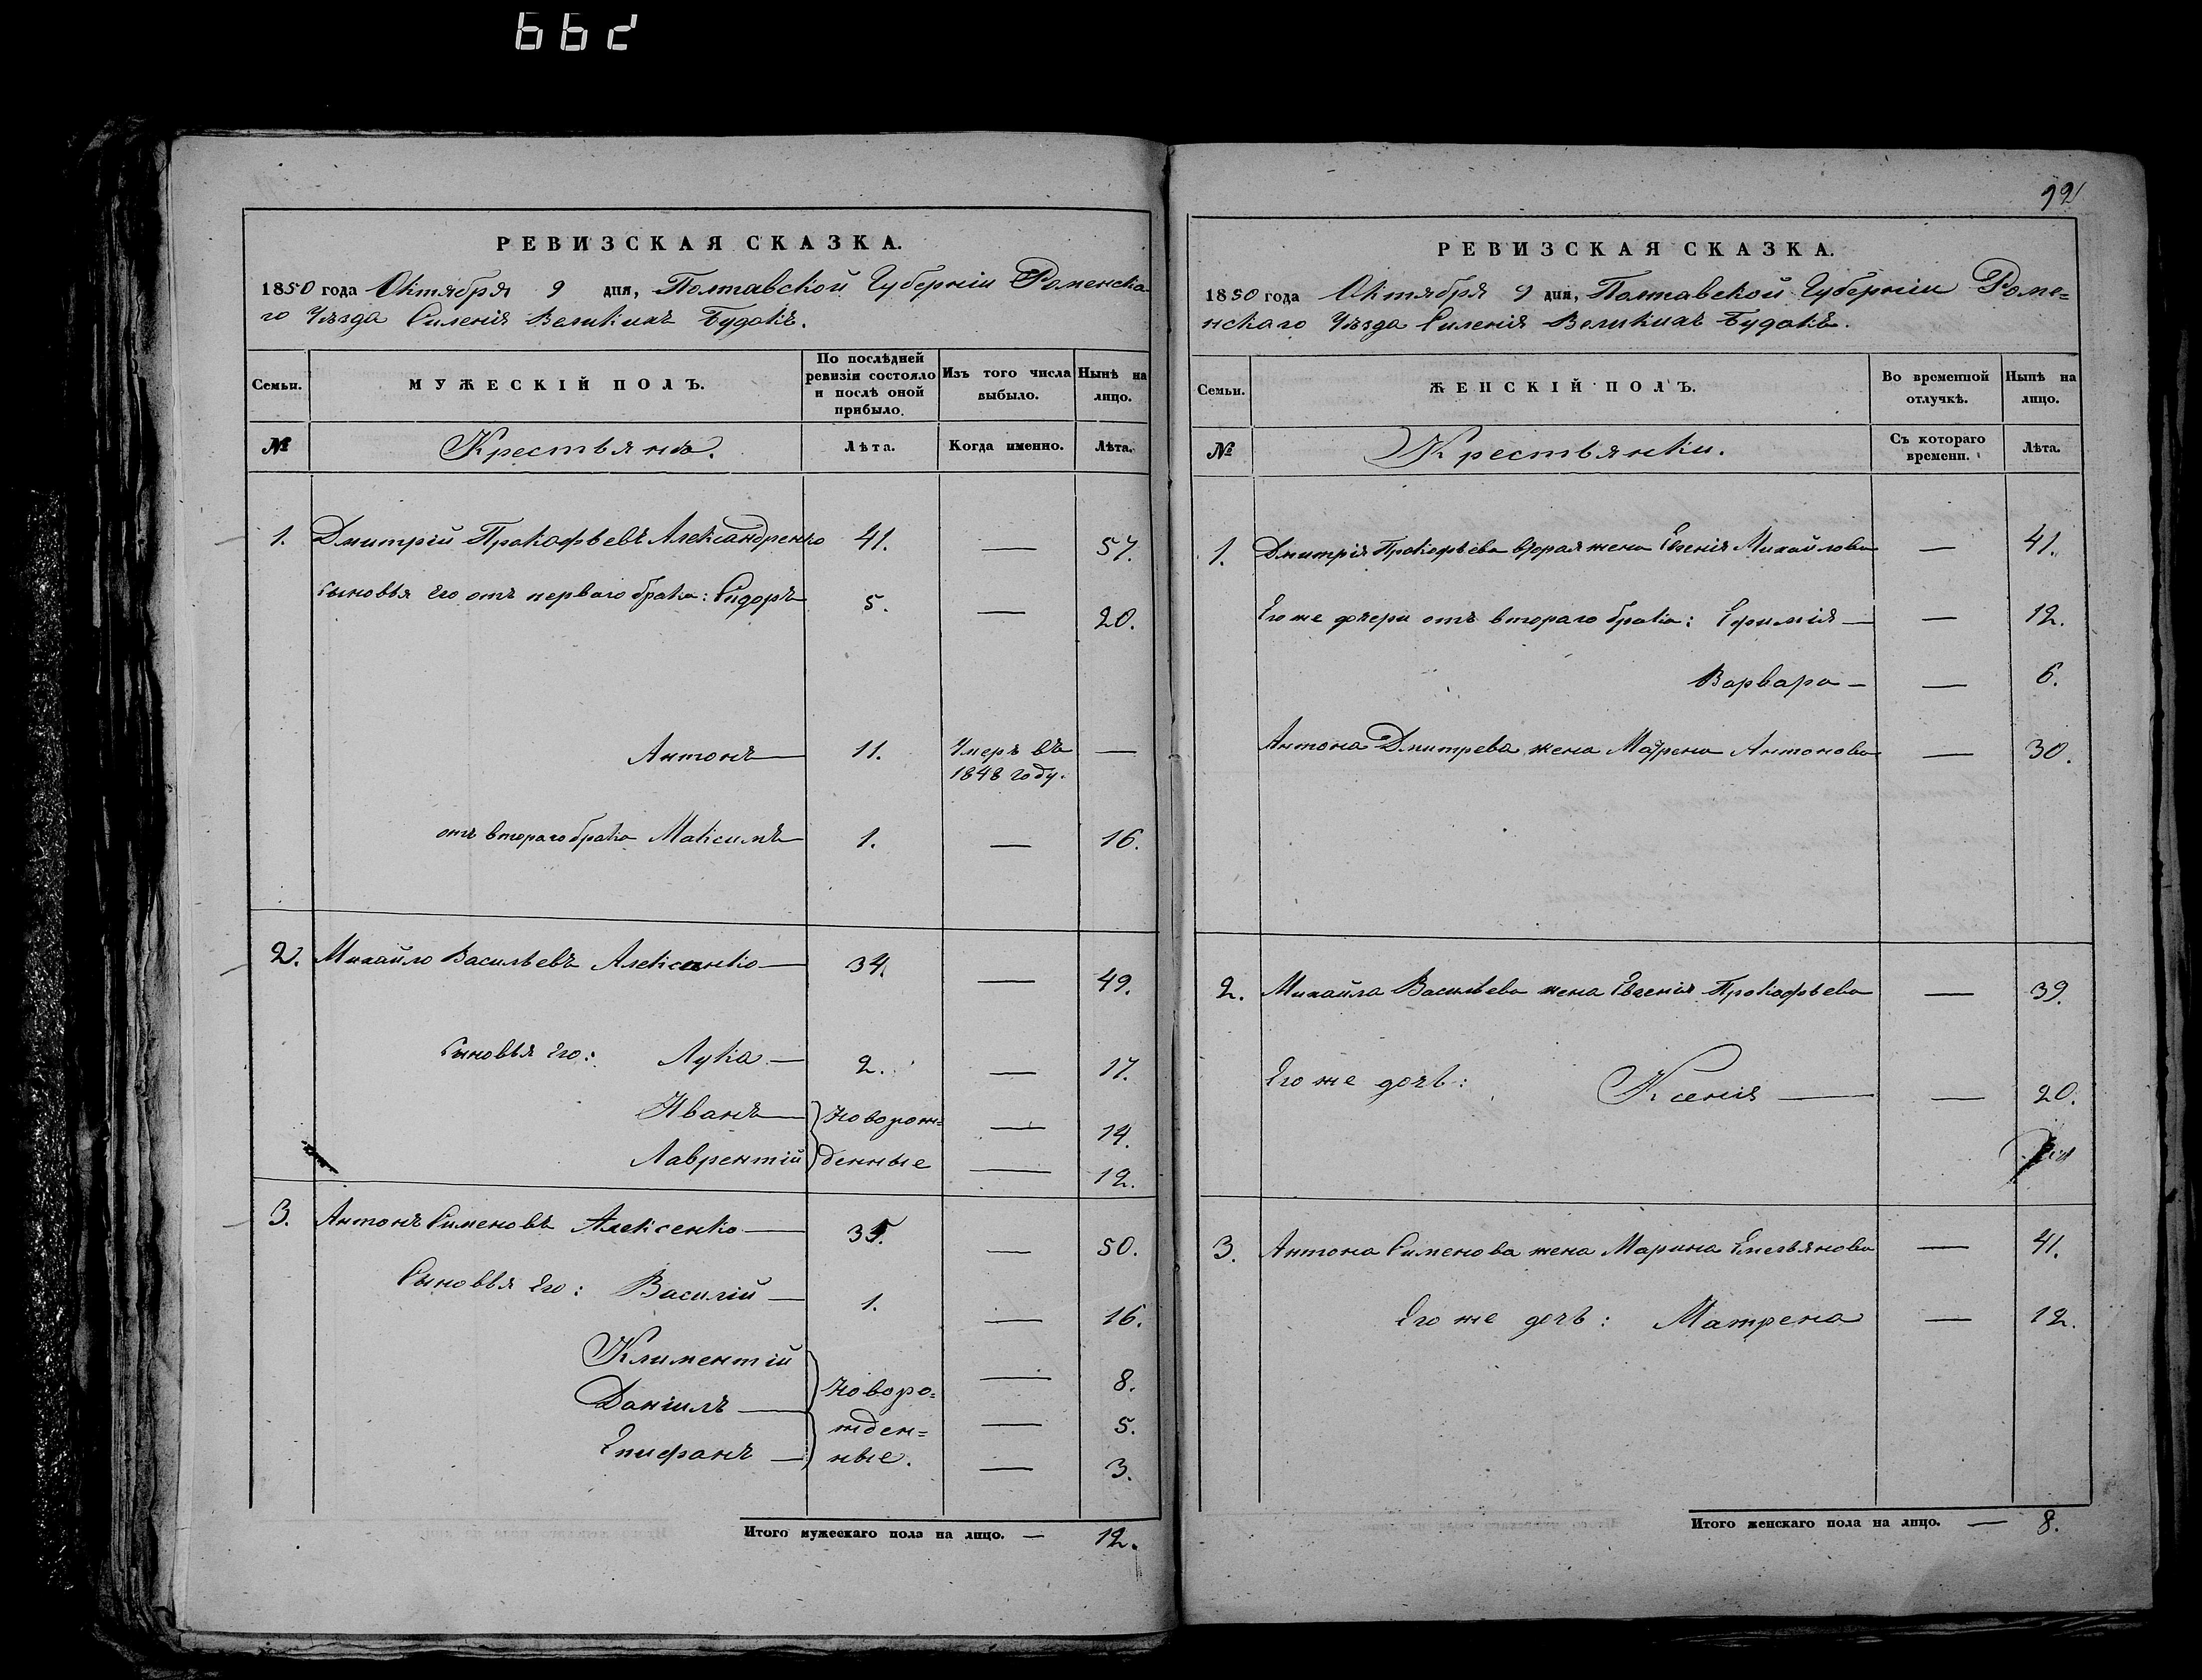 662
РЕВИЗСКАЯ СКАЗКА.
1850 года Октября 9 дня, Полтавской Губерніи Роменска-
го Уѣзда Силенія Великихъ Будокъ.
Семьи.
МУЖЕСКІЙ ПОЛЪ.
По послѣдней ревизіи состояло и послѣ оной прибыло.
Изъ того числа выбыло.
Нынѣ на лицо.
№
Крестьяне.
Лѣта.
Когда именно.
Лѣта.
1. Дмитрій Прокофьевъ Александренко 41. — 57.
Сыновья его отъ перваго брака: Сидоръ 5. — 20.
Антонъ — 11. Умеръ въ 1848 году. —
отъ втораго брака Максимъ — 1. — 16.
2. Михайло Васильевъ Алексенко — 34. — 49.
Сыновья его: Лука — 2. — 17.
Иванъ — Новорож= — 14.
Лаврентій денные — 12.
3. Антонъ Сименовъ Алексенко — 35. — 50.
Сыновья его: Василій — 1. — 16.
Климентій — 8.
Даніилъ — Новоро= жден= — 5.
Епифанъ — ные. — 3.
Итого мужескаго пола на лицо. — 12.
92
РЕВИЗСКАЯ СКАЗКА.
1850 года Октября 9 дня, Полтавской Губерніи Роме=
нскаго Уѣзда Силенія Великихъ Будокъ.
Семьи.
ЖЕНСКІЙ ПОЛЪ.
Во временной отлучкѣ.
Нынѣ на лицо.
№
Крестьянки.
Съ котораго времени.
Лѣта.
1. Дмитрія Прокофьева вторая жена Евгенія Михайлова — 41.
Его же дочери отъ втораго брака: Ефимія — — 12.
Варвара — — 6.
Антона Дмитрева жена Матрена Антонова — 30.
2. Михайла Васильева жена Евгенія Прокофьева — 39.
Его же дочь: Ксенія — — 20.
3. Антона Сименова жена Марина Емельянова — 41.
Его же дочь: Матрена — 12.
Итого женскаго пола на лицо. — 8.